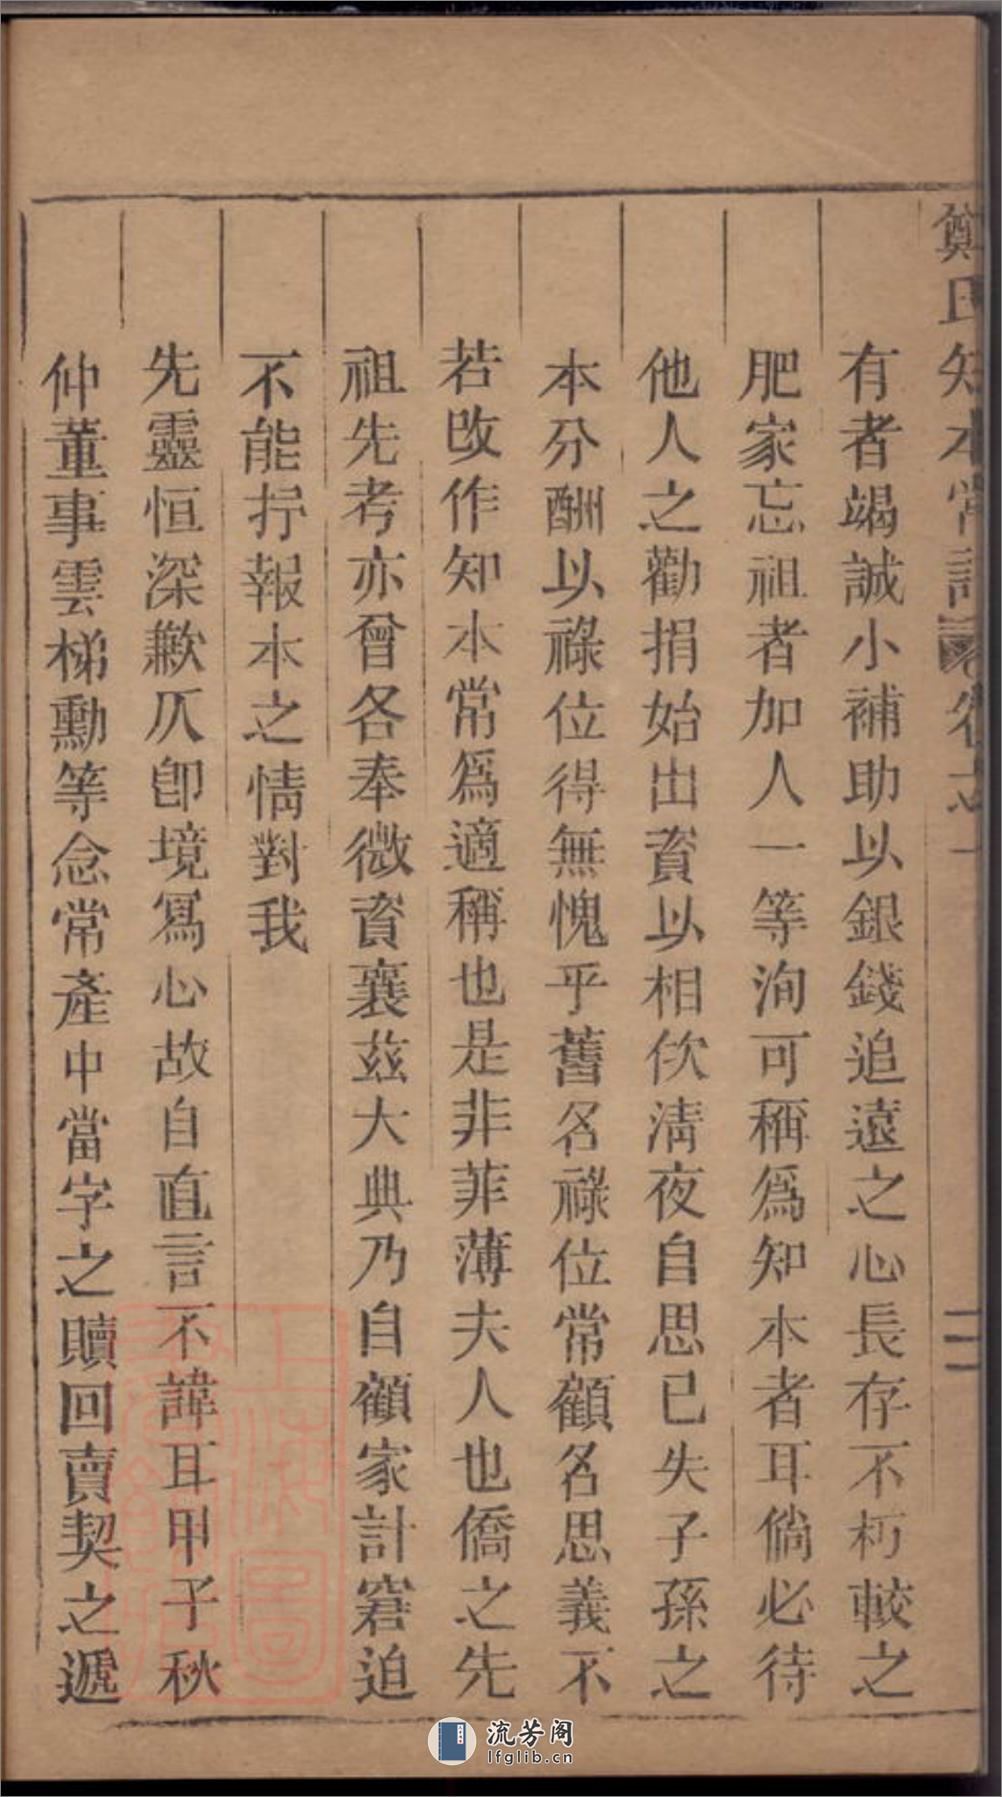 鄭氏知本常記 卷之一 二
有者竭誠小補助以銀錢追遠之心長存不朽較之
肥家忘祖者加人一等洵可稱爲知本者耳倘必待
他人之勸捐始出資以相佽淸夜自思已失子孫之
本分酬以祿位得無愧乎舊名祿位常顧名思義不
若改作知本常爲適稱也是非菲薄夫人也僑之先
祖先考亦曾各奉微資襄茲大典乃自顧家計窘迫
不能抒報本之情對我
先靈恒深歉仄卽境寫心故自直言不諱耳甲子秋
仲董事雲梯勳等念常產中當字之贖回賣契之遞
上海圖書館藏
流芳阁
lfglib.cn